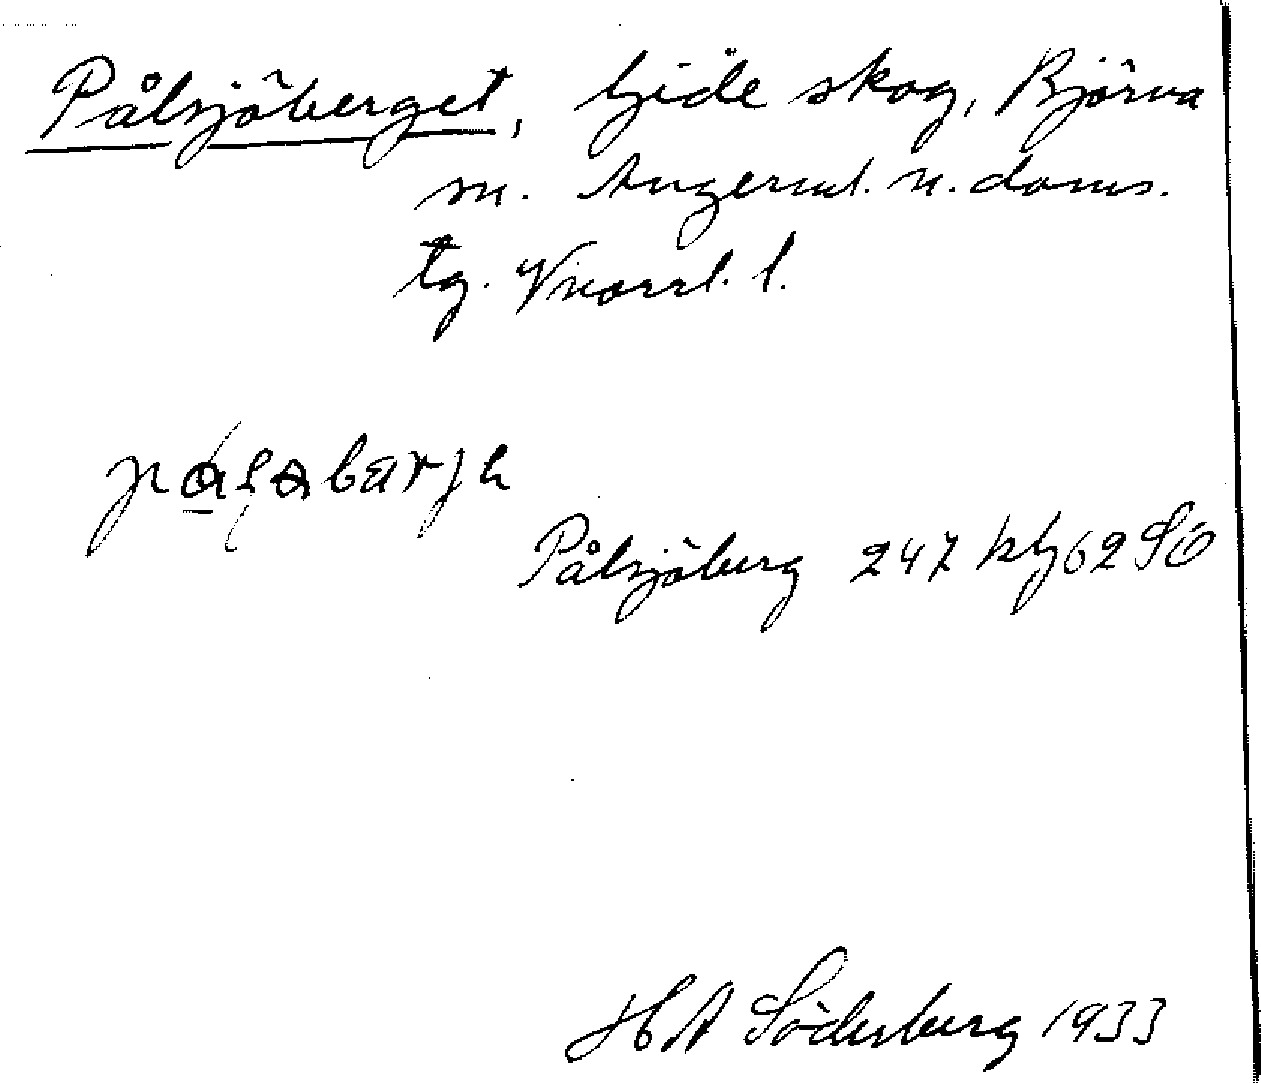 Pålsjöberget, Gideå skog, Björna
sn. Ångerml. n. doms.
tg. Vnorrl. l.
Pålsjöberg 247 kbl 62 SO
H A Söderberg 1933